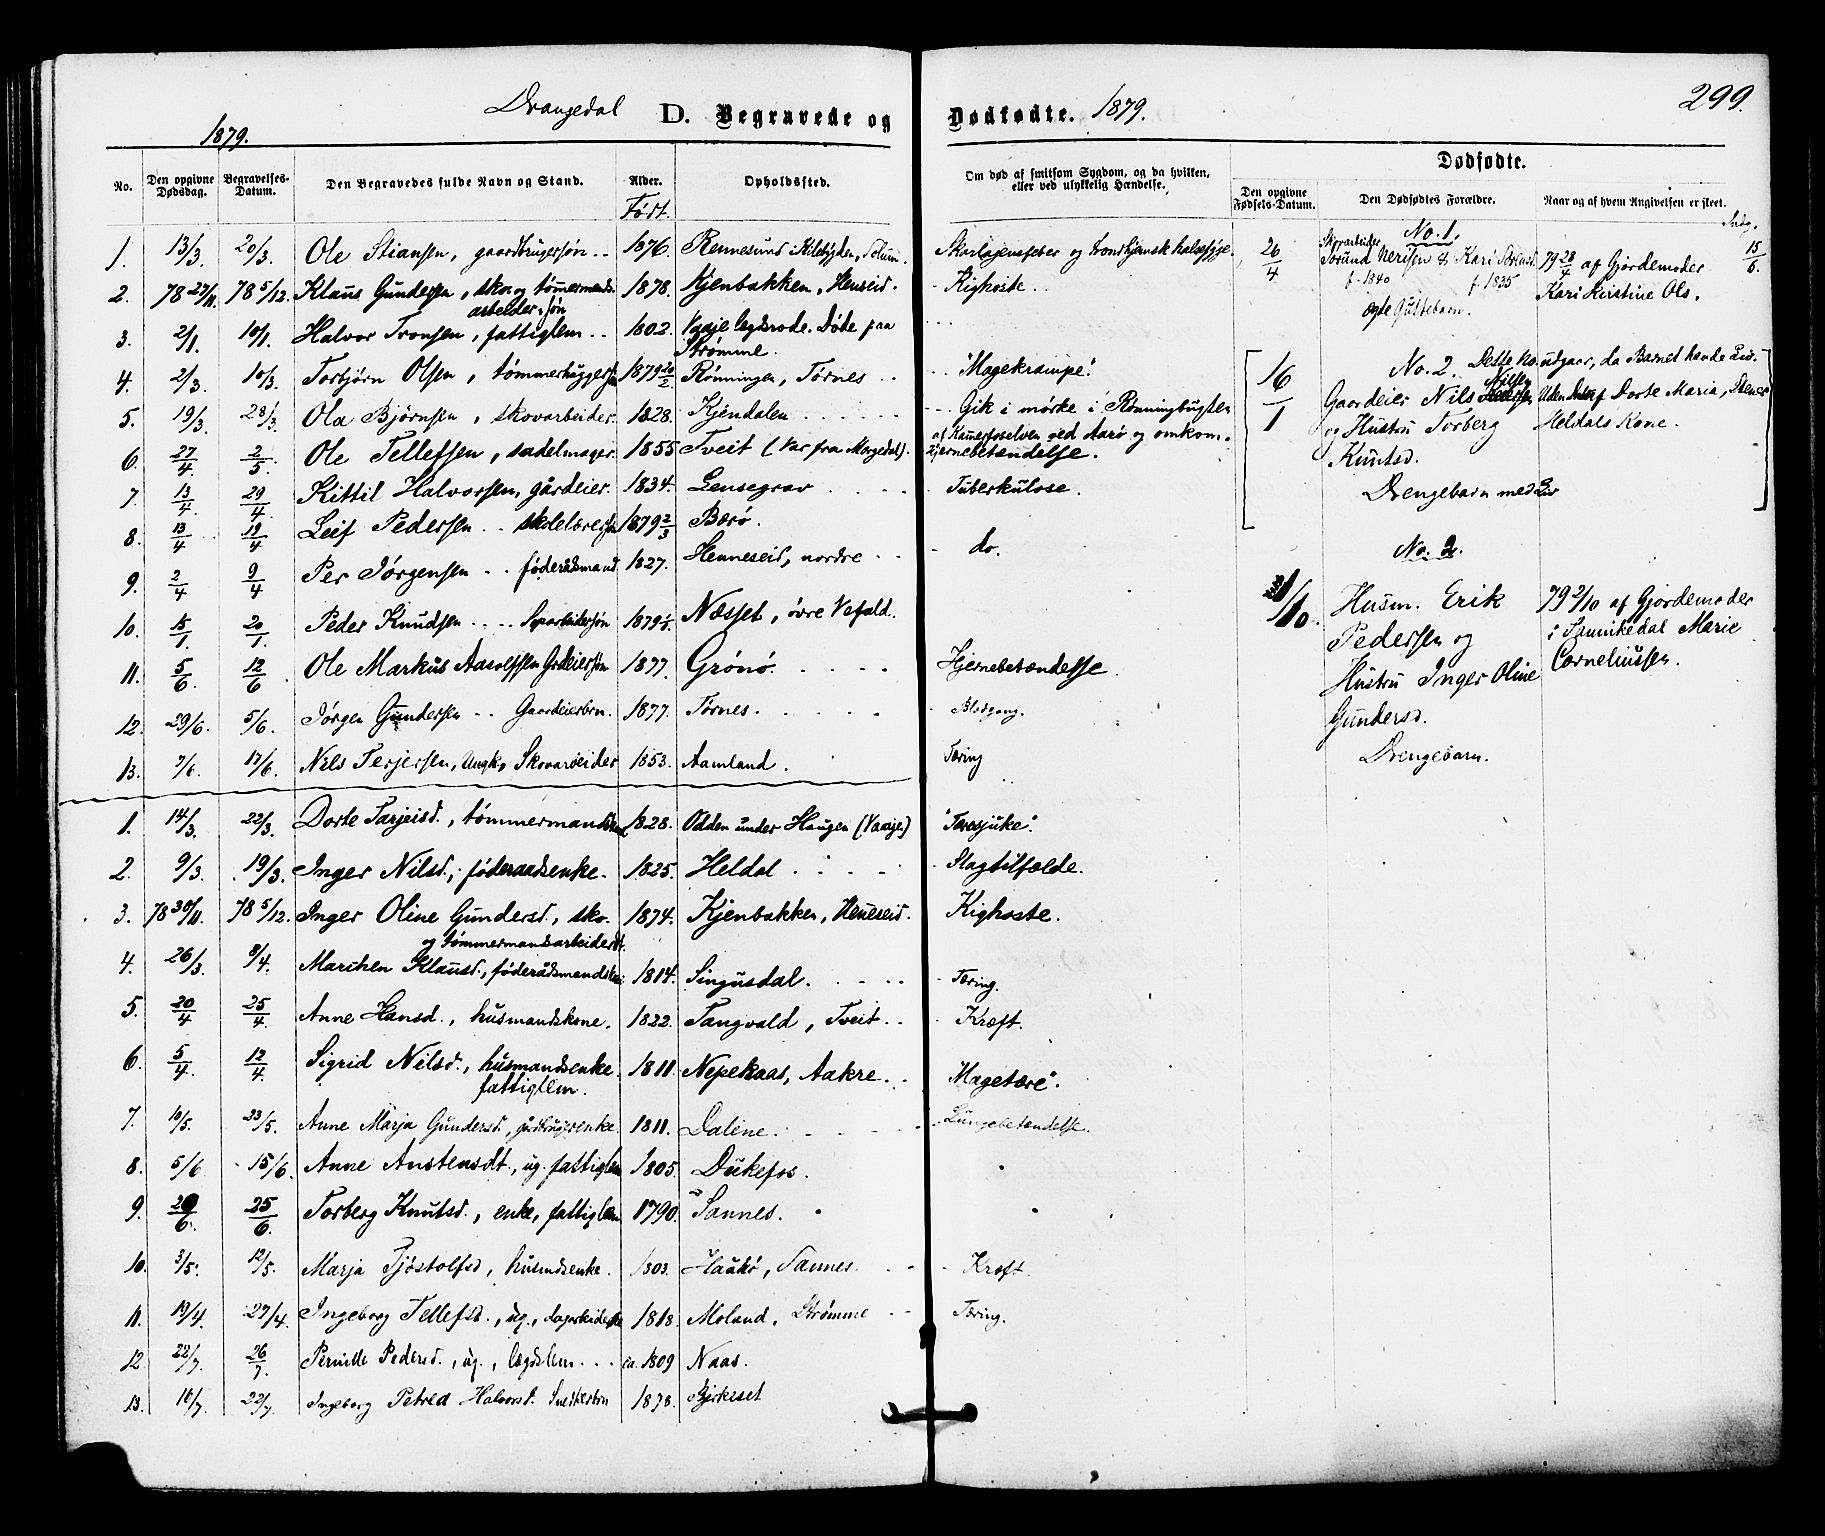 299.
Drangedal D. Begravede og Dødfødte. 1879.
1879.
No. Den opgivne Dødsdag. Begravelses-Datum. Den Begravedes fulde Navn og Stand. Alder. Født. Opholdssted. Om død af smitsom Sygdom, og da hvilken, eller ved ulykkelig Hændelse.
1. 13/3. 20/3. Ole Stiansen, gaardbrugersøn .. 1876. Rennesund i Kilebygden, Solum. Skarlagensfeber og trondhjemsk halssyge.
2. 78 27/11. 78 5/12. Klaus Gundersen, sko og tømmermands-
arbeider, søn 1878. Kjenbakken, Henseid. Kighoste.
3. 2/1. 10/1. Halvor Tronsen, fattiglem .. 1802. Vaaje legdsrode. Døde paa
Strømme.
4. 2/3. 10/3. Torbjørn Olsen, tømmerhuggers. 1879 20/2. Rønningen, Tørnes .. "Magekrampe".
5. 19/3. 28/3. Ola Bjørnsen, skovarbeider. 1828. Kjendalen Gik i mørke i Rønningbugten
af Kamerfoselven ved Aarø og omkom.
6. 27/4. 2/5. Ole Tellefsen, sadelmager. 1855 Tveit (Var fra Morgedal). Hjernebetændelse.
7. 13/4. 29/4. Kittil Halvorsen, gårdeier. 1834. Lensegrav Tuberkulose.
8. 13/4 19/4 Leif Pedersen .. skolelærersøn 1879 2/3 Bærø.
9. 2/4 9/4 Per Jørgensen .. føderådsmand 1827. Henneseid, nordre .. do.
10. 15/1. 20/1. Peder Knudsen .... Skoarbeidersøn 1879 Næsset, øvre Vefald.
11. 5/6. 12/6 Ole Markus Aasolfsen Grdeiersøn 1877. Grönö. Hjernebetændelse.
12. 29/6. 5/6. Jørgen Gundersen .. Gaardeierbrn. 1877. Tørnes. Blodgang.
13. 7/6. 17/6. Nils Terjersen, Ungk, Skovarbeider 1853. Aamland. Tæring
1. 14/3. 22/3. Dorte Tarjeisd., tømmermands 1828. Odden under Haugen (Vaaje) "Taresjuke".
2. 9/3. 19/3. Inger Nilsd., føderaadsenke. 1825. Heldal Slagtilfælde.
3. 78 30/11. 78 5/12. Inger Oline Gundersd., sko-
og tømmermandsarbeiderdt. 1874. Kjenbakken, Heneseid. Kighoste.
4. 26/3. 8/4. Marihen Klausd., føderådsmandskone 1814. Singusdal. Tæring.
5. 20/4 25/4. Anne Hansd., husmandskone. 1822. Tangvald, Tveit .. Kræft.
6. 5/4. 12/4. Sigrid Nilsd., husmandsenke.
fattiglem. 1811. Nepekaas, Aakre. Magetære".
7. 10/5. 23/5. Anne Marja Gundersd., gårdbrugerenke. 1811. Daline. Lungebetændelse.
8. 5/6 15/6. Anne Anstensdt., ug. fattiglem 1805. Dukefos.
9. 20/6. 25/6. Torberg Knutsd., enke, fattiglem 1790. Sannes.
10. 3/5. 12/5. Marja Tjøstolfsd., husmdsenke. 1803. Haukø, Sannes. Kræft.
11. 19/4. 27/4. Ingeborg Tellefsd., ug., dagarbeiderske 1818. Moland, Strømme .. Tæring.
12. 22/7. 26/7. Pernille Pedersd., ug., lægdslem ... ca. 1809 Naas.
13. 16/7. 22/7. Ingeborg Petrea Halvorsd. Snedkerbrn 1878. Bjerkeset
Dødfødte.
Den opgivne Fødsels-Datum. Den Dødfødtes Forældre. Naar og af hvem Angivelsen er skeet.
No. 1.
26/4 Skovarbeider Nerisen & Kari
f. 1840 f. 1835
ægte Guttebarn.
79 28/4 af Gjordemoder
Kari Kirstine Ols.
15/6.
No. 2. Dette No. udgaar, da Barnet havde Liv.
16/1 Gaardeier Nils Nilsen
og Hustru Torberg
Knutsd.
Drengebarn med Liv
af Dorte Maria, Stener
Heldals Kone.
No. 2.
1/10. Husm. Erik
Pedersen og
Hustru Inger Oline
Gundersd.
Drengebarn.
79 2/10 af Gjordemoder
i Sannikedal Marie
Corneliussen.